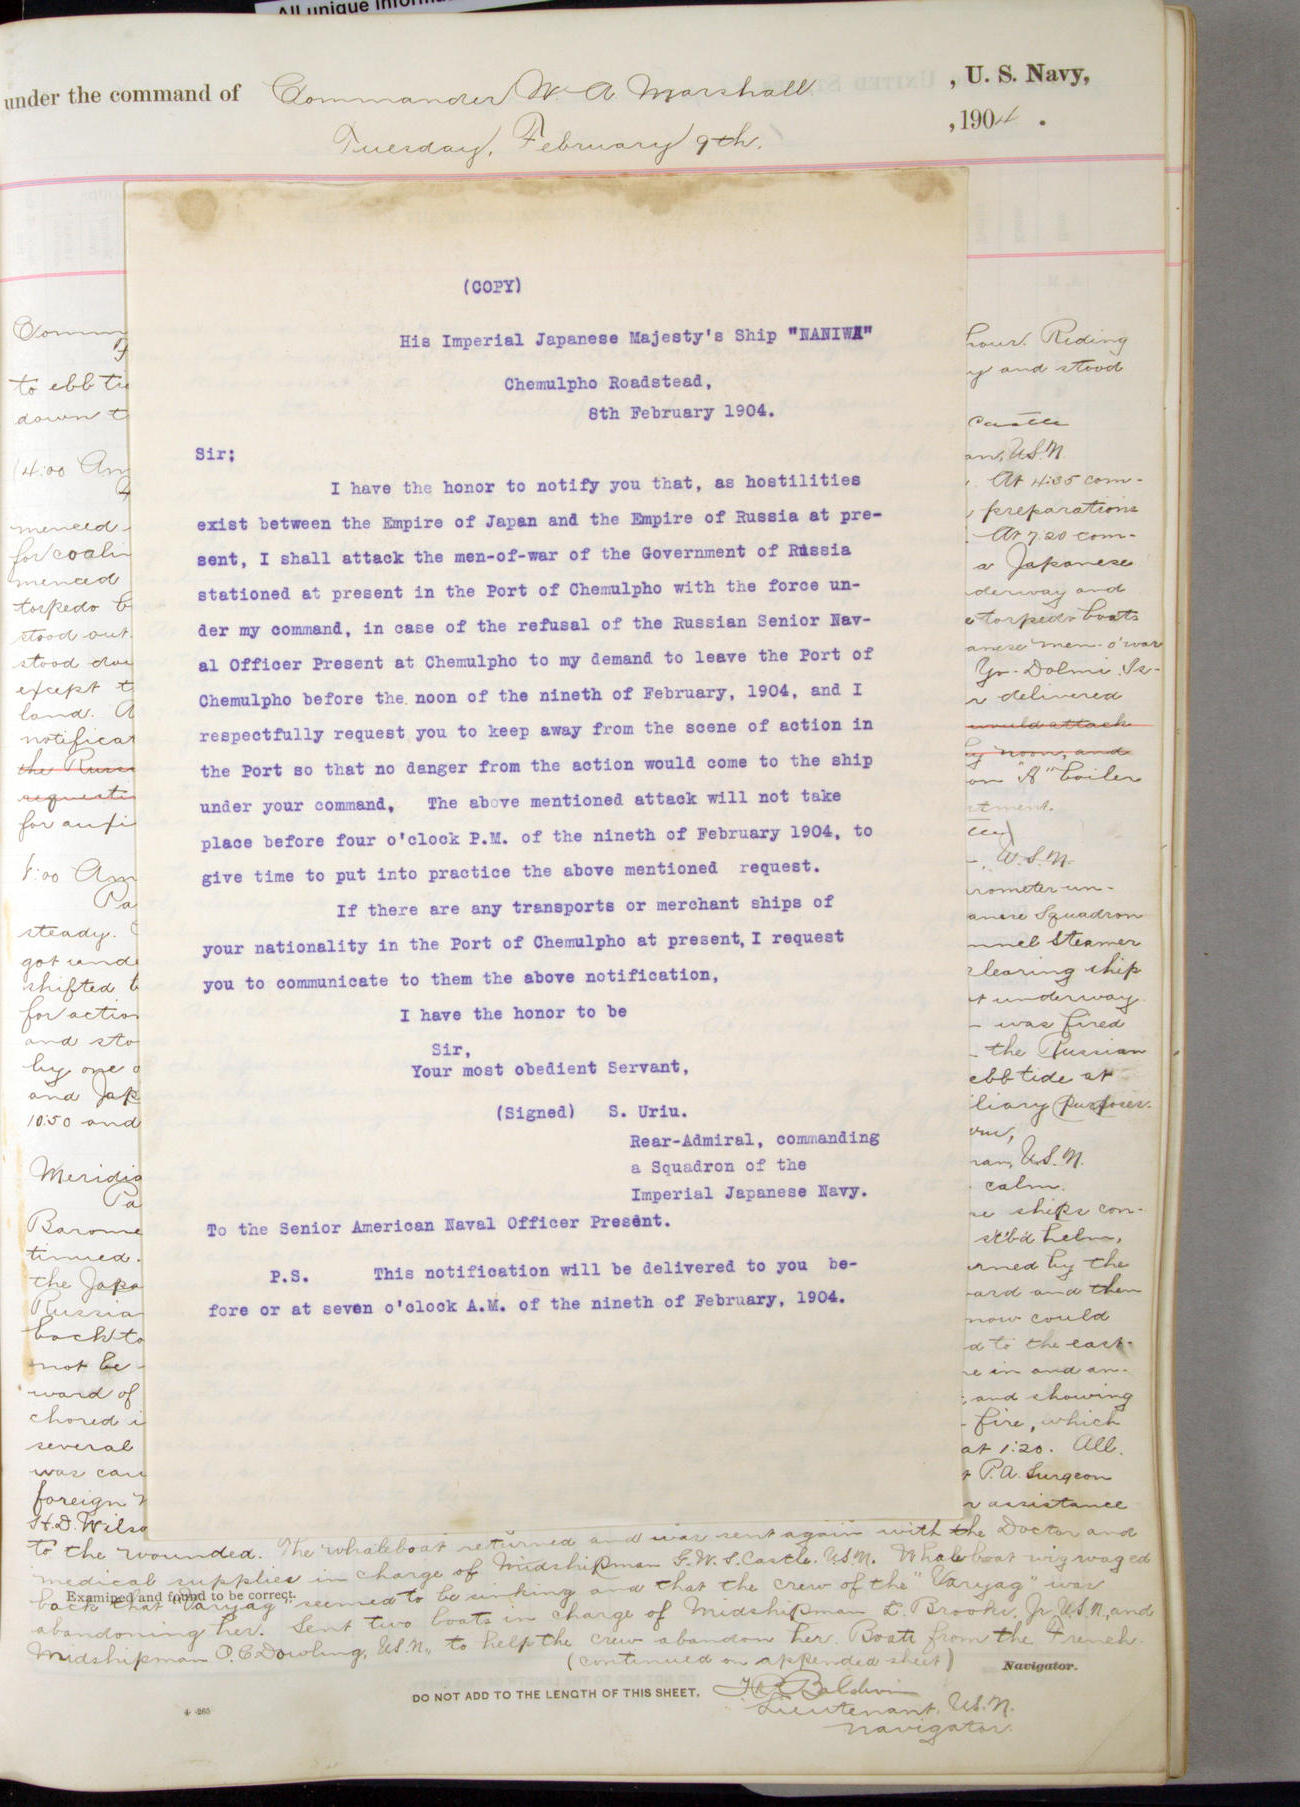 All unique informa
under the command of Commander W. A. Marshall, U. S. Navy,
Tuesday, February 9th, 1904.
(COPY)
His Imperial Japanese Majesty's Ship "NANIWA"
Chemulpho Roadstead,
8th February 1904.
Sir;
I have the honor to notify you that, as hostilities
exist between the Empire of Japan and the Empire of Russia at pre-
sent, I shall attack the men-of-war of the Government of Russia
stationed at present in the Port of Chemulpho with the force un-
der my command, in case of the refusal of the Russian Senior Nav-
al Officer Present at Chemulpho to my demand to leave the Port of
Chemulpho before the noon of the nineth of February, 1904, and I
respectfully request you to keep away from the scene of action in
the Port so that no danger from the action would come to the ship
under your command, The above mentioned attack will not take
place before four o'clock P.M. of the nineth of February 1904, to
give time to put into practice the above mentioned request.
If there are any transports or merchant ships of
your nationality in the Port of Chemulpho at present, I request
you to communicate to them the above notification,
I have the honor to be
Sir,
Your most obedient Servant,
(Signed) S. Uriu.
Rear-Admiral, commanding
a Squadron of the
Imperial Japanese Navy.
To the Senior American Naval Officer Present.
P.S. This notification will be delivered to you be-
fore or at seven o'clock A.M. of the nineth of February, 1904.
Comm
to ebb ti
down t
4:00 Am
menced
for coalin
menced
torpedo b
stood out
stood dow
except t
land. A
notificat
the Russ
requestin
for auxi
8:00 Am
Pa
steady.
got unde
shifted b
for action
and sto
by one o
and Jap
10:50 and
Meridia
Pa
Barome
tinued.
the Japa
Russian
back to
not be
ward of
chored i
several
was cau
foreign
H.D. Wilso
hour. Riding
y and stood
Castle
an, U.S.N.
At 4:35 com-
preparations
At 7.20 com-
a Japanese
derway and
e torpedo boats
anese men-o'war
Yo-Dolmi Is-
r delivered
would attack
by noon, and
on "A" boiler
rtment.
U.S.N.
rometer un-
anese Squadron
nnel steamer
clearing ship
t underway
was fired
the Russian
ebb tide at
iliary purposes.
ran, U.S.N.
calm.
se ships con-
stb'd helm,
urned by the
ard and then
now could
d to the east-
re in and an-
and showing
fire, which
at 1:20. All
P.A. Surgeon
r assistance
to the wounded. The whaleboat returned and was sent again with the Doctor and
medical supplies in charge of Midshipman G.W.S. Castle, U.S.N. Whaleboat wigwaged
back that "Varyag" seemed to be sinking and that the crew of the "Varyag" was
abandoning her. Sent two boats in charge of Midshipman E. Brooks, Jr. U.S.N., and
Midshipman O.C. Dowling, U.S.N., to help the crew abandon her. Boats from the French
(continued on appended sheet)
Examined and found to be correct.
Navigator.
DO NOT ADD TO THE LENGTH OF THIS SHEET.
Baldwin
Lieutenant, U.S.N.
Navigator.